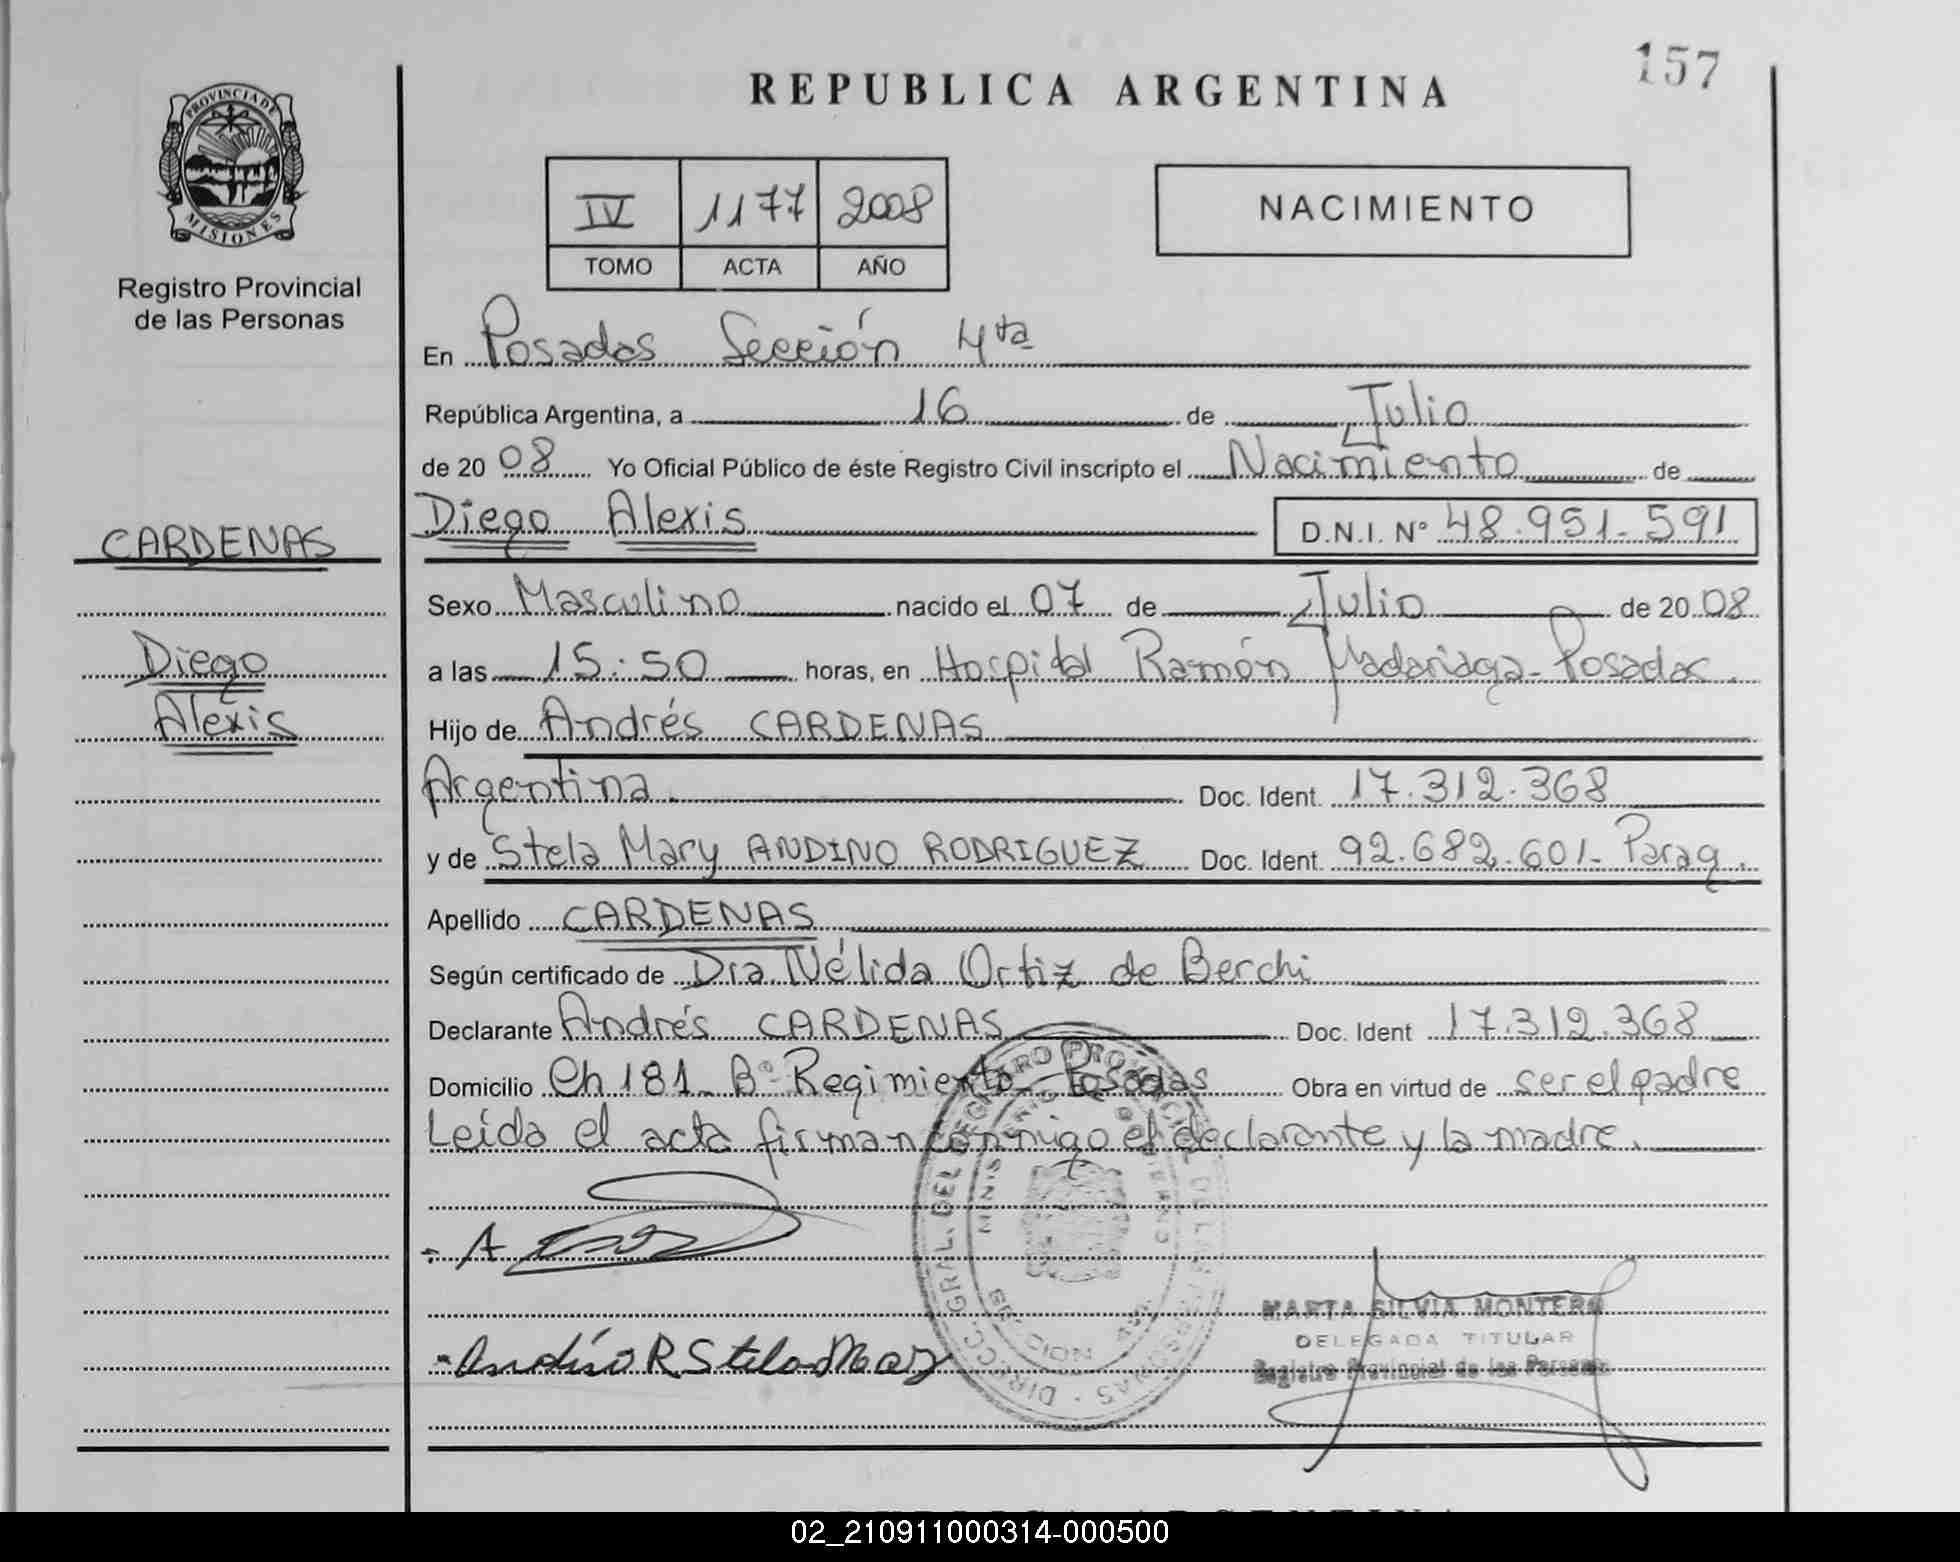 157
REPUBLICA ARGENTINA
PROVINCIA DE
MISIONES
Registro Provincial
de las Personas
IV 1177 2008
TOMO ACTA AÑO
NACIMIENTO
En Posadas Sección 4ta
República Argentina, a 16 de Julio
de 20 08 Yo Oficial Público de éste Registro Civil inscripto el Nacimiento de
CARDENAS
Diego Alexis D.N.I. Nº 48.951.591
Sexo Masculino nacido el 07 de Julio de 20 08
Diego
a las 15:50 horas, en Hospital Ramón Madariaga - Posadas.
Alexis
Hijo de Andrés CARDENAS
Argentina. Doc. Ident. 17.312.368
y de Stela Mary ANDINO RODRIGUEZ Doc. Ident. 92.682.601- Parag.
Apellido CARDENAS
Según certificado de Dra. Nélida Ortiz de Berchi
Declarante Andrés CARDENAS Doc. Ident 17.312.368
Domicilio Ch 181 - Bº Regimiento - Posadas Obra en virtud de ser el padre
Leída el acta firman conmigo el declarante y la madre.
Andino R Stela Mary
MARTA SILVIA MONTERO
DELEGADA TITULAR
Registro Provincial de las Personas
02_210911000314-000500